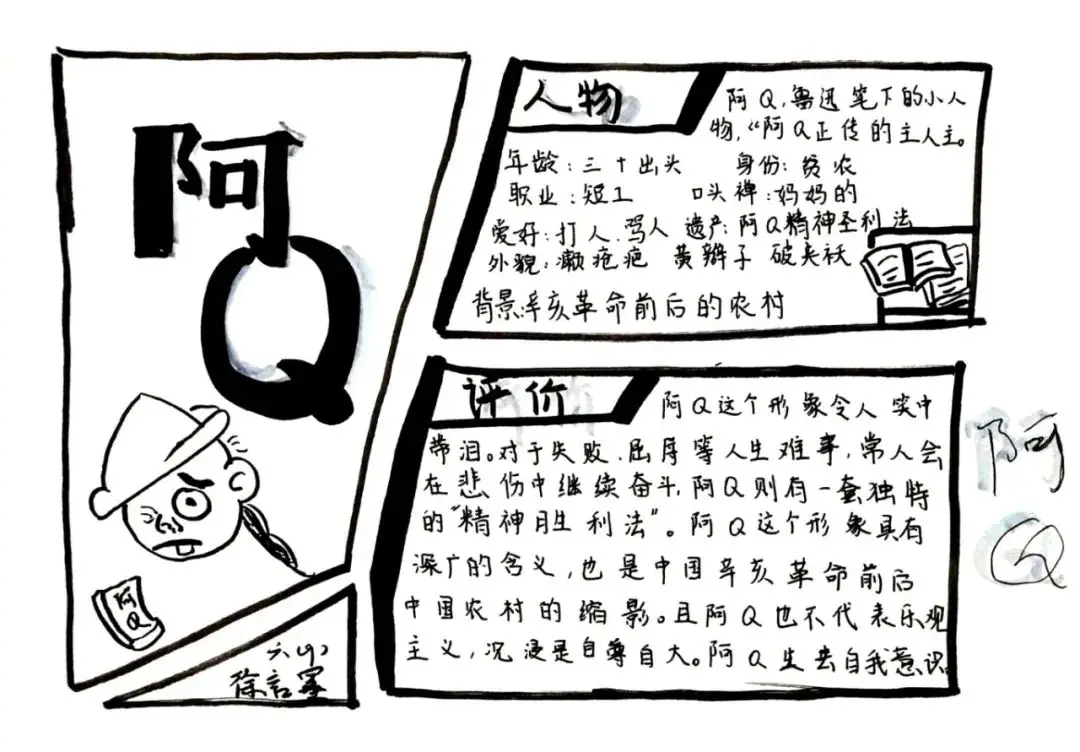 阿
Q
阿
Q
人物
阿Q,鲁迅笔下的小人
物,“阿Q正传的主人主。
年龄:三十出头 身份:贫农
职业:短工 口头禅:妈妈的
爱好:打人、骂人 遗产:阿Q精神圣利法
外貌:癞疮疤 黄辫子 破夹袄
背景:辛亥革命前后的农村
评价
阿Q这个形象令人笑中
带泪。对于失败、屈辱等人生难事,常人会
在悲伤中继续奋斗,阿Q则有一套独特
的“精神胜利法”。阿Q这个形象具有
深广的含义,也是中国辛亥革命前后
中国农村的缩影。且阿Q也不代表乐观
主义,沉浸是自尊自大。阿Q生去自我意识
阿
Q
徐言